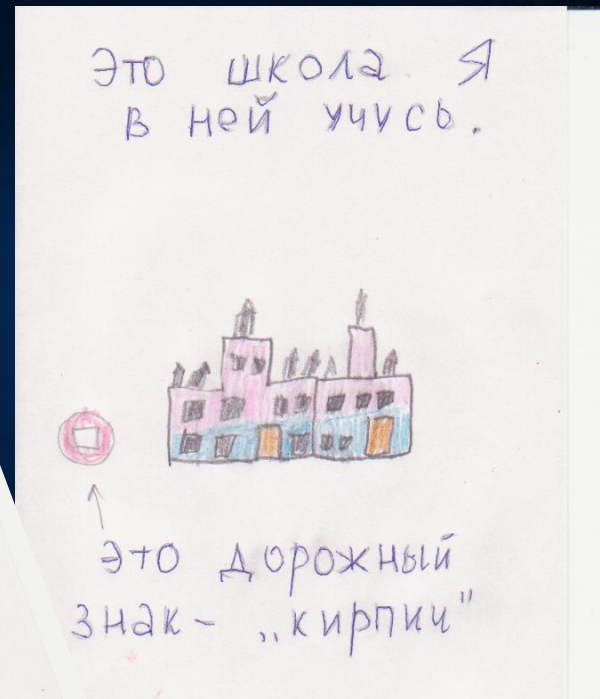 Это школа. Я
в ней учусь.
Это дорожный
знак- „кирпич"